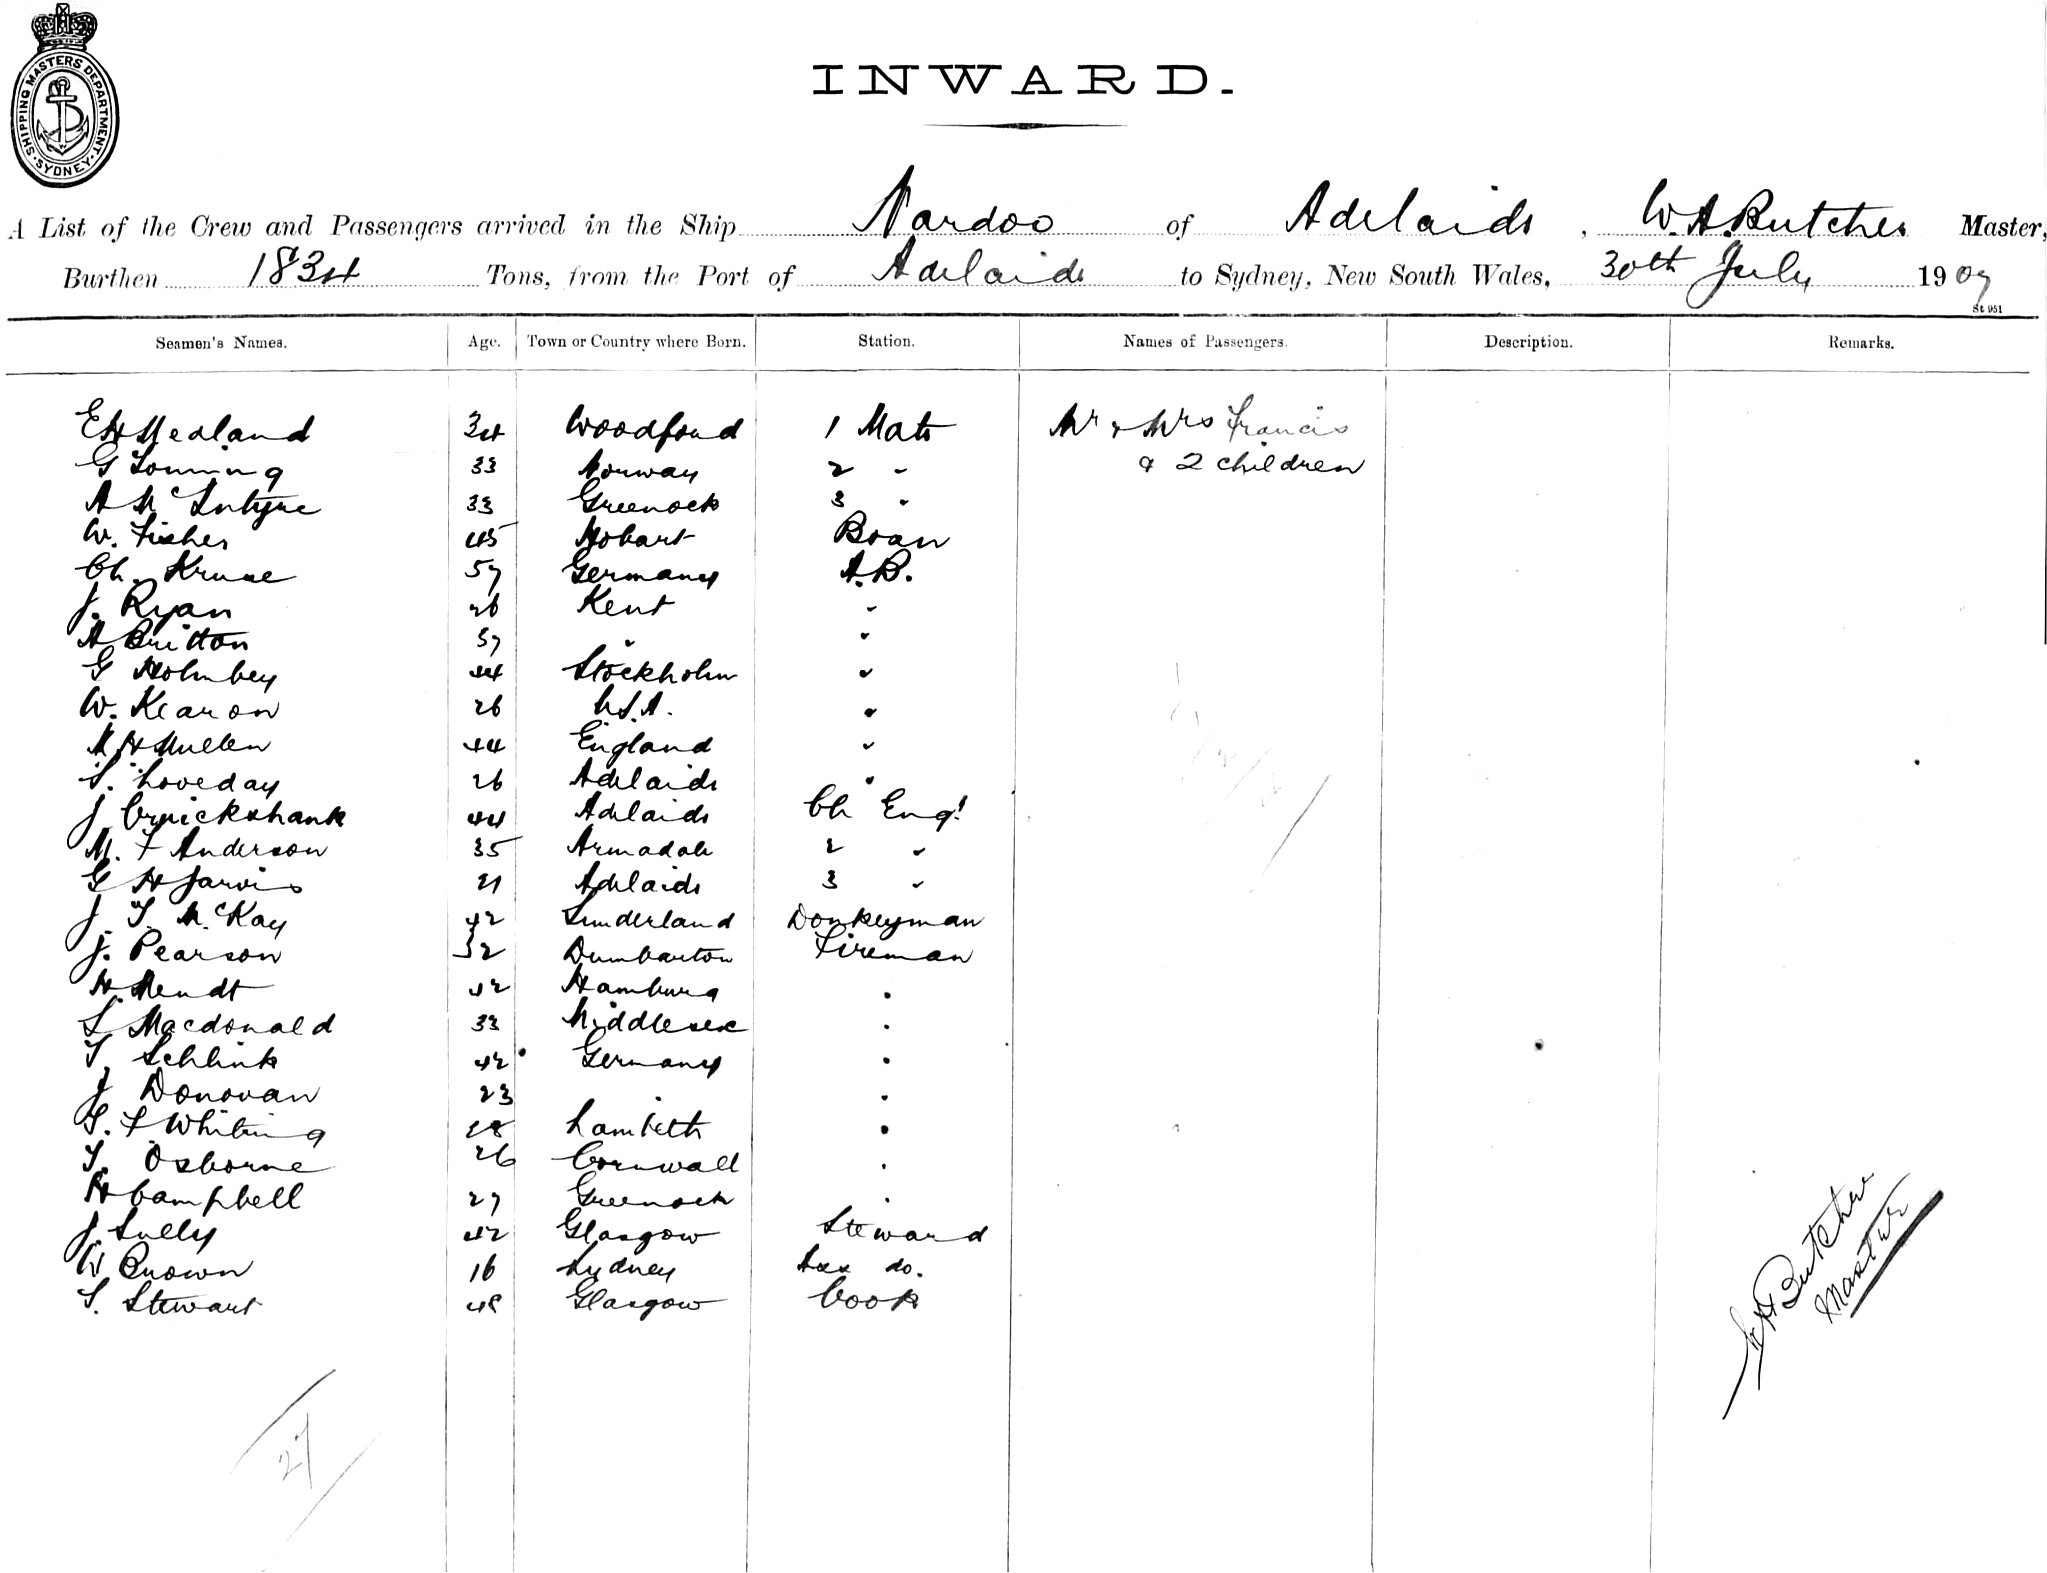 SHIPPING MASTERS DEPARTMENT · SYDNEY ·
INWARD.
A List of the Crew and Passengers arrived in the Ship Nardoo of Adelaide, W. A. Butcher Master,
Burthen 1834 Tons, from the Port of Adelaide to Sydney, New South Wales, 30th July 1907
St 951
Seamen's Names. Age. Town or Country where Born. Station. Names of Passengers. Description. Remarks.
E H Medland 34 Woodford 1 Mate Mr & Mrs Francis
G 33 Norway 2 " & 2 children
A McIntyre 33 Greenock 3 "
W. Fisher 45 Hobart Bosn
Ch. Kruse 57 Germany A.B.
J. Ryan 26 Kent "
A Britton 37 " "
G Holmbey 44 Stockholm "
W. Kearon 26 U.S.A. "
H Mullen 44 England "
S. Loveday 26 Adelaide "
J Cruickshank 44 Adelaide Ch Engr
M. F Anderson 35 Armadale 2 "
G H Jarvis 21 Adelaide 3 "
J. T. McKay 42 Sunderland Donkeyman
J. Pearson 32 Dumbarton Fireman
H. Mendt 42 Hamburg "
S Macdonald 33 Middlesex "
T. Schlink 42 Germany "
J Donovan 23 " "
T. F Whiting 28 Lambeth "
T. Osborne 26 Cornwall "
H Campbell 27 Greenock "
J. Sully 42 Glasgow Steward
W Brown 16 Sydney Ass do.
S. Stewart 48 Glasgow Cook
W A Butcher
Master
27